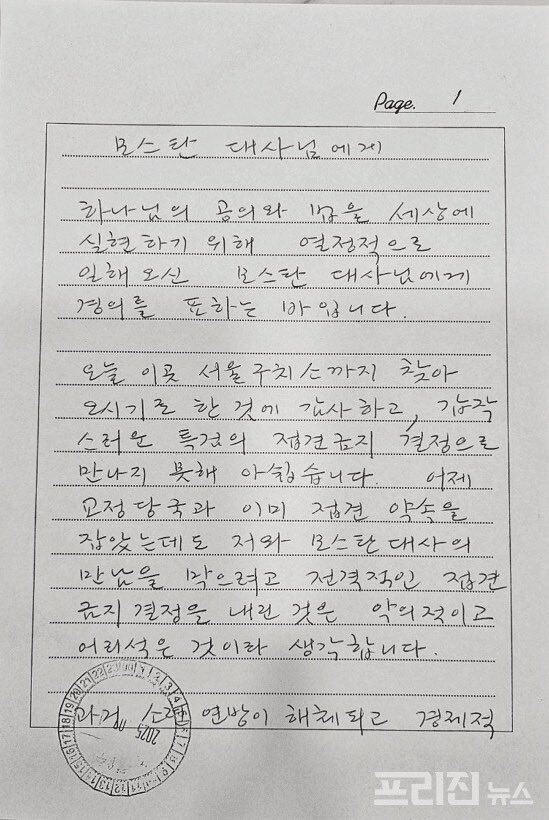 Page. 1
모스탄 대사님에게
하나님의 공의와 법을 세상에
실현하기 위해 열정적으로
일해오신 모스탄 대사님에게
경의를 표하는 바입니다.
오늘 이곳 서울구치소까지 찾아
오시기로 한 것에 감사하고, 갑작
스러운 특검의 접견금지 결정으로
만나지 못해 아쉽습니다 어제
교정당국과 이미 접견 약속을
잡았는데도 저와 모스탄대사의
만남을 막으려고 전격적인 접견
금지결정을 내린 것은 악의적이고
어리석은 것이라 생각합니다.
과거 소련 연방이 해체되고 경제적
2025
프리진 뉴스